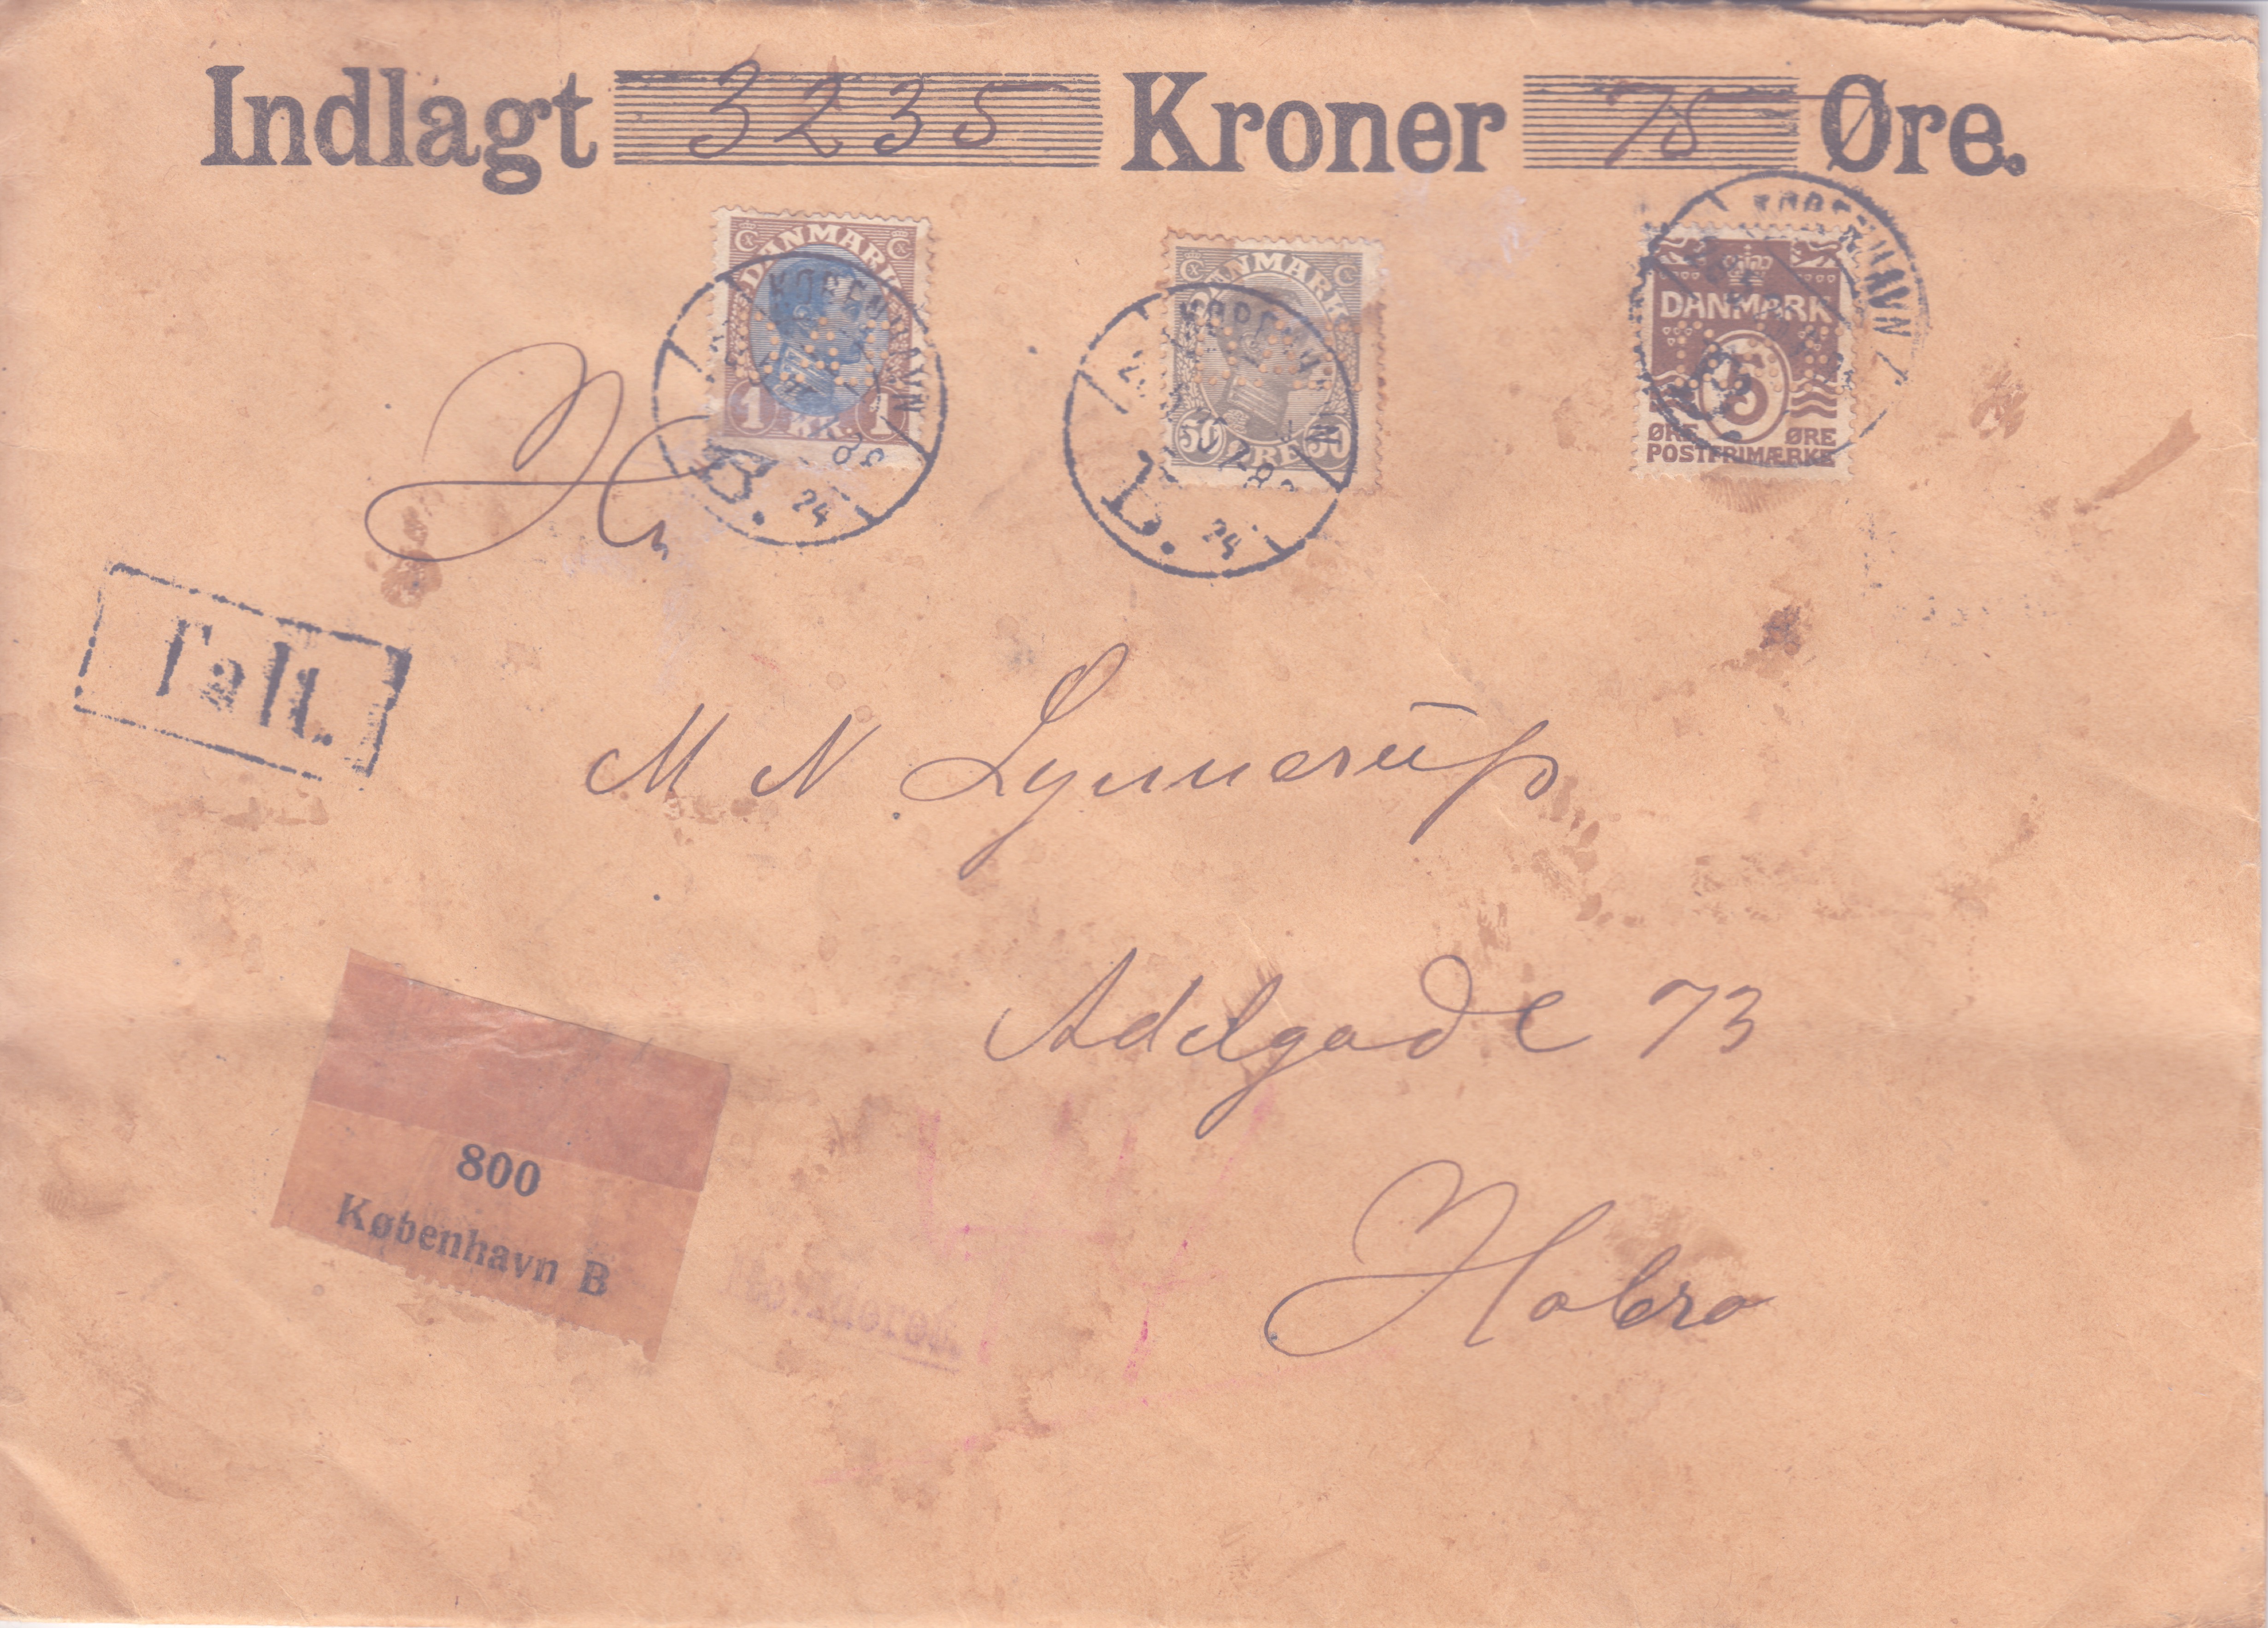 Indlagt 3235 Kroner 75 Øre.
DANMARK
1 KR. 1
DANMARK
50 ØRE 50
KØBENHAVN
DANMARK
5
ØRE ØRE
POSTFRIMÆRKE
KØBENHAVN
B. 24
KØBENHAVN
24
Talt.
M N Lynnerup
Adelgade 73
800
København B
Hobro